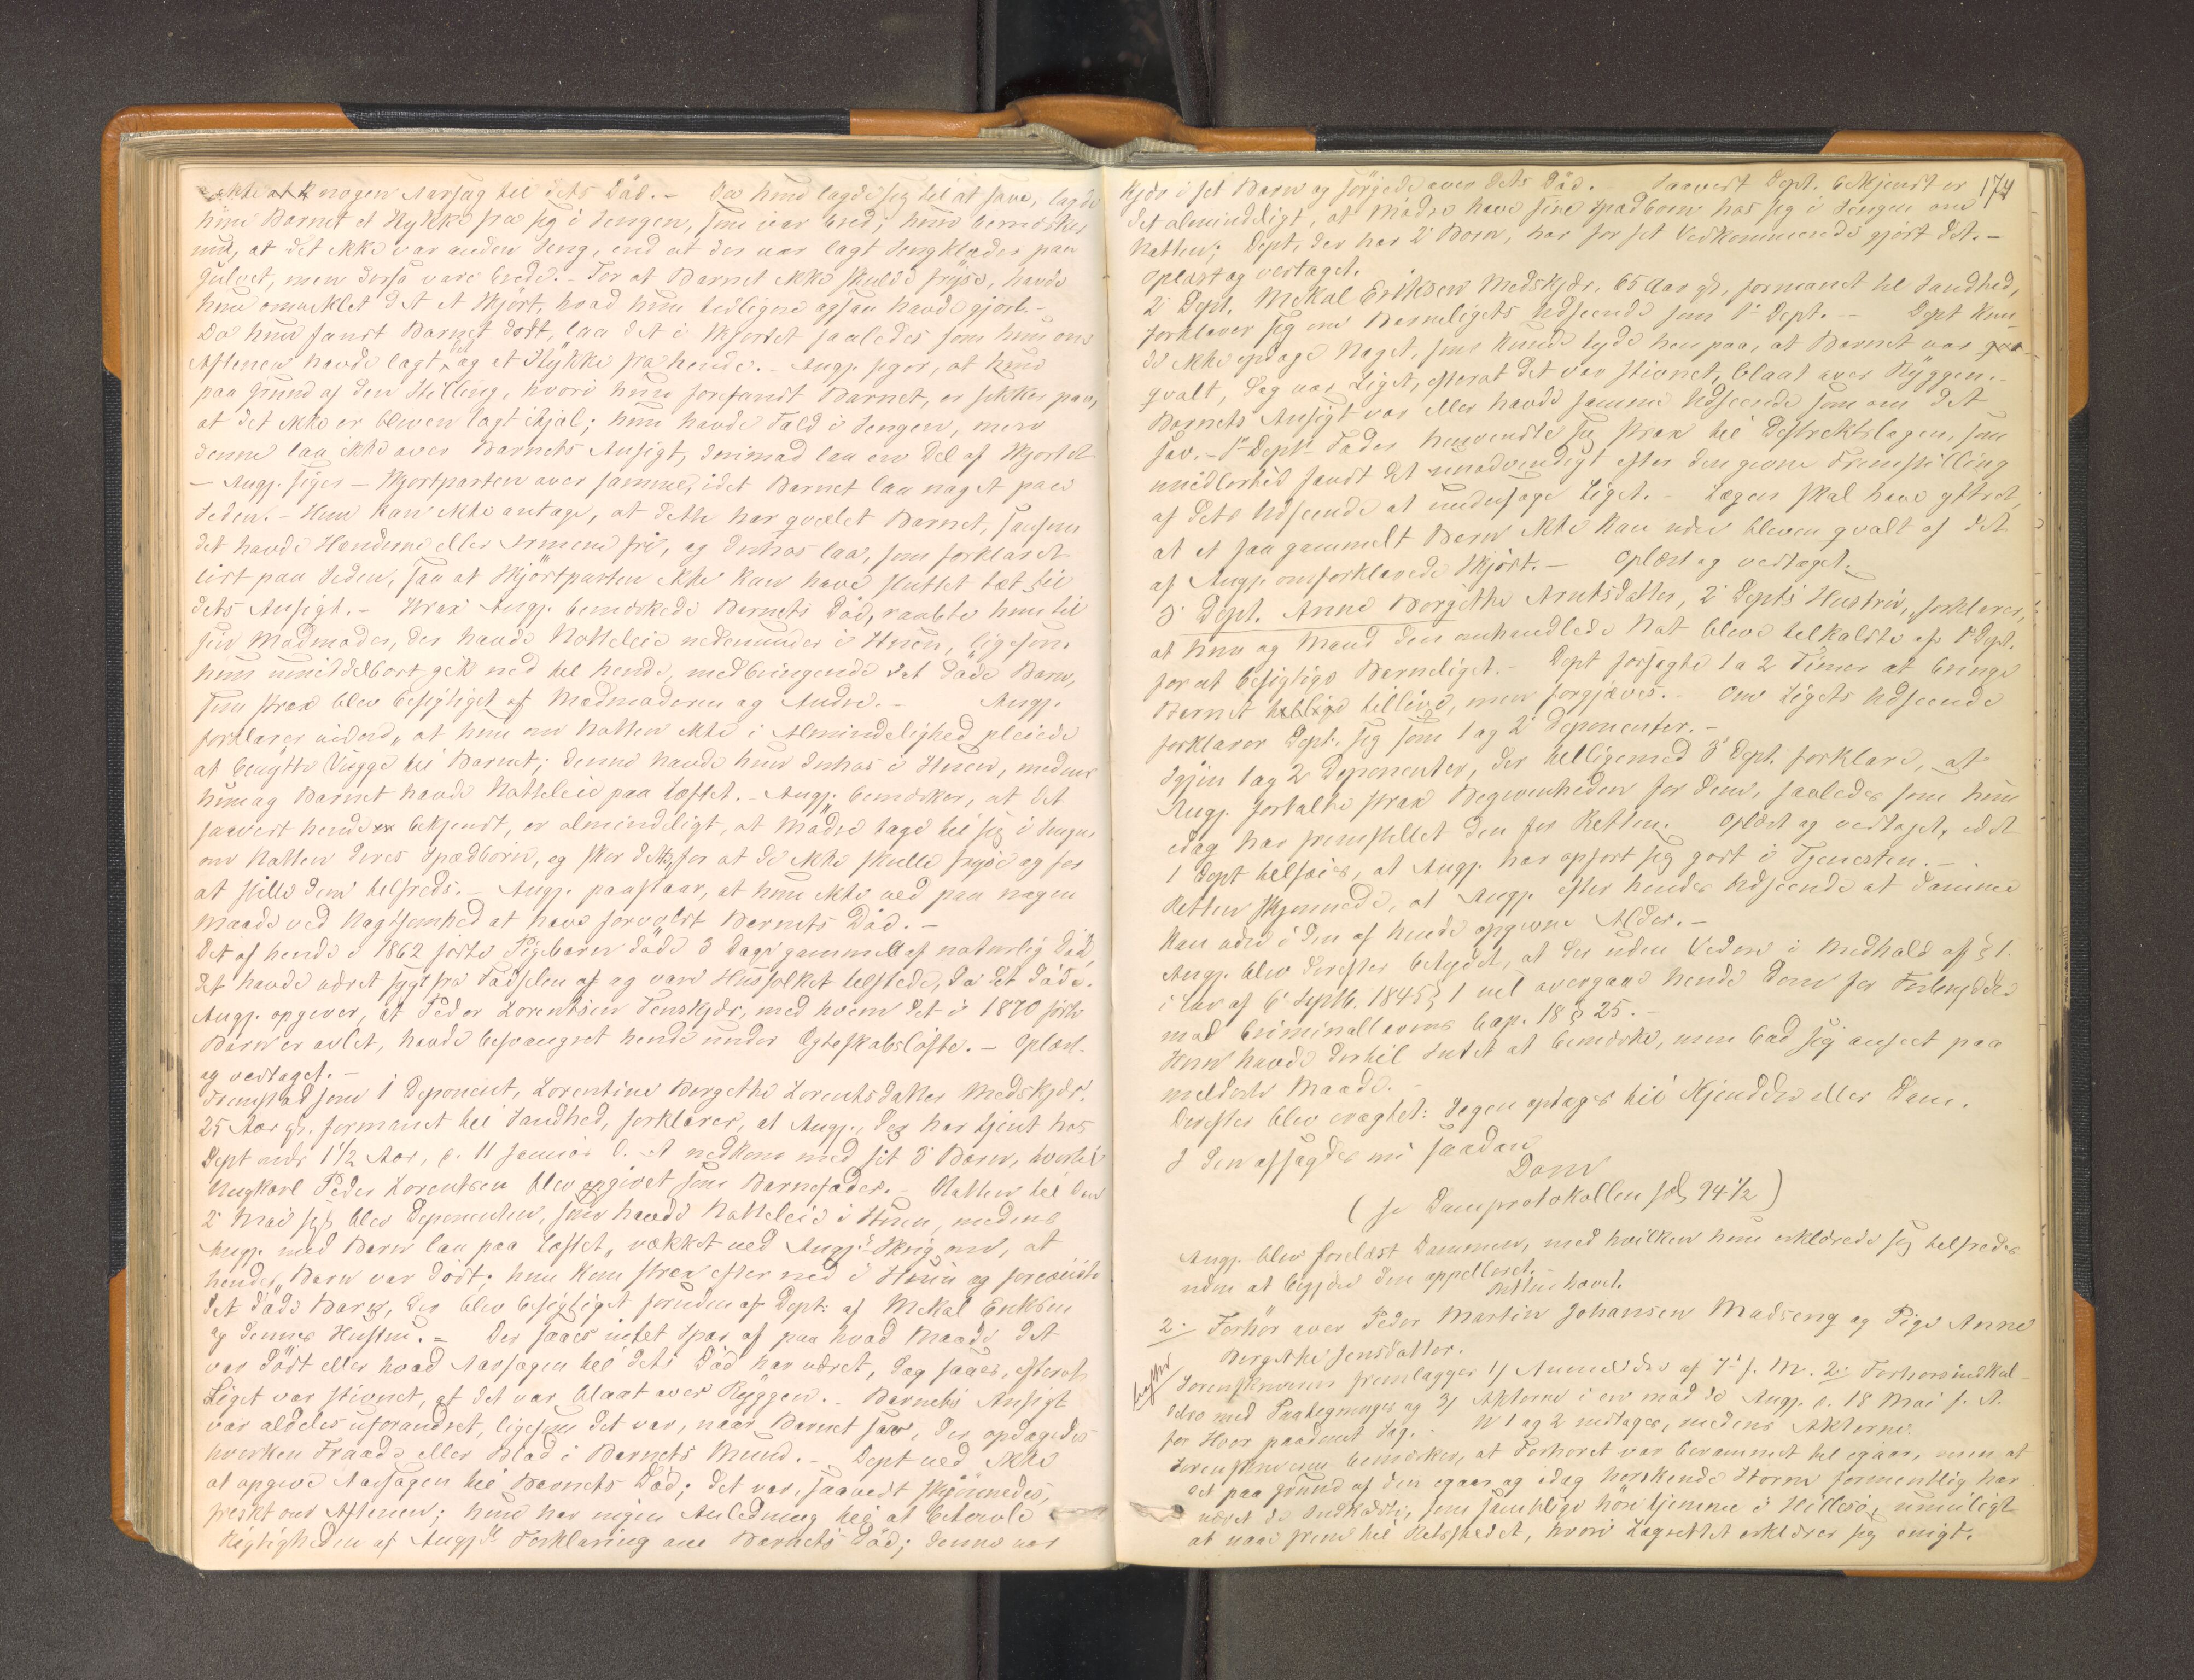 ikke nogen Aarsag til dets Död. - Da hun lagde sig til at sove, lagde
hun Barnet et Stykke fra sig i Sengen, som var bred; hun bemærker
nu, at det ikke var anden Seng, end at der var lagt Sengklæder paa
Gulvet, men disse vare brede. - For at Barnet ikke skulde fryse, havde
hun omviklet det et Skjört, hvad hun tidligere ogsaa havde gjort. -
Da hun fandt Barnet dödt, laa det i Skjörtet saaledes som hun om
Aftenen havde lagt det og et Stykke fra hende. - Angj. siger, at hun
paa Grund af den Stilling, hvori hun forefandt Barnet, er sikker paa,
at det ikke er bleven lagt ihjæl; hun havde Fæld i Sengen, men
denne laa ikke over Barnets Ansigt, derimod laa en Del af Skjortet
- Angj. siger - Skjortparten over samme, idet Barnet laa noget paa
Siden. - Hun kan ikke antage, at dette har qvælet Barnet, saasom
det havde Hænderne eller Armene fri, og derhos laa, som forklaret
lidt paa Siden, saa at Skjörtparten ikke kan have sluttet tæt til
dets Ansigt. - Strax Angj. bemærkede Barnets Död, raabte hun til
sin Madmoder, der havde Natteleie nedenunder i Stuen, ligesom
hun umiddelbart gik ned til hende, medbringende det döde Barn,
som strax blev besigtiget af Madmoderen og Andre. - Angj.
forklarer videre, at hun om Natten ikke i Almindelighed pleiede
at benytte Vugge til Barnet; denne havde hun derhos i Stuen, medens
hun og Barnet havde Natteleie paa Loftet. - Angj. bemærker, at det
saavidt hende bekjendt, er almindeligt, at Mödre tage til sig i Sengen
om Natten deres Spædbörn, og sker dette, for at de ikke skulle fryse og for
at stille dem tilfreds. - Angj. paastaar, at hun ikke ved paa nogen
Maade ved Uagtsomhed at have forvoldt Barnets Död. -
Det af hende i 1862 födte Pigebarn döde 3 Dage gammelt af naturlig Död,
det havde været sygt fra Födselen af og vare Husfolket tilstede, da det döde.
Angj. opgiver, at Peder Lorentsen Tenskjær, med hvem det i 1870 födte
Barn er avlet, havde besvangret hende under Ægteskabslöfte. - Oplæst
og vedtaget. -
Fremstod som 1 Deponent, Lorentine Bergethe Lorentsdatter Medskjær,
25 Aar gl. formanet til Sandhed, forklarer, at Angj., der har tjent hos
Dept. 1 1/2 Aar, d. 11 Januar d. A. nedkom med sit 3' Barn, hvortil
Ungkarl Peder Lorentsen blev opgivet som Barnefader. - Natten til den
2' Mai blev Deponenten, som havde Natteleie i Stuen, medens
Angj. med Barn laa paa Loftet, vækket ved Angj.s Skrig om, at
hendes Barn var dödt; hun kom strax efter ned i Stuen og foreviste
det döde Barn, der blev besigtiget foruden af Dept. af Mekal Eriksen
og dennes Hustru. - Der saaes intet Spor af paa hvad Maade det
var dödt eller hvad Aarsagen til dets Död har været, dog saaes, efterat
Liget var stivnet, at det var blaat over Ryggen. - Barnets Ansigt
var aldeles uforandret, ligesom det var, naar Barnet sov, der opdagedes
hverken Fraade eller Blod i Barnets Mund. - Dept. ved ikke
at opgive Aarsagen til Barnets Död; det var, saavidt skjönnedes,
friskt om Aftenen; hun har ingen Anledning til at betvivle
Rigtigheden af Angj.s Forklaring om Barnets Död; denne var
174
kjær i sit Barn og sörgede over dets Död. - Saavidt Dept. bekjendt er
det almindeligt, at Mödre have sine Spædbörn hos sig i Sengen om
Natten; Dept. der har 2 Börn, har for sit Vedkommende gjort det. -
Oplæst og vedtaget.
2' Dept. Mekal Eriksen Medskjær, 65 Aar gl., formanet til Sandhed,
forklarer sig om Barneligets Udseende som 1' Dept. - Dept kun-
de ikke opdage Noget, som kunde tyde hen paa, at Barnet var
qvalt, dog var Liget, efterat det var stivnet, blaat over Ryggen. -
Barnets Ansigt var eller havde samme Udseende som om det
sov. - 1' Depts Fader henvendte sig strax til Distriktslægen, som
imidlertid fandt det unödvendigt efter den givne Fremstilling
af dets Udseende at undersöge Liget. - Lægen skal have yttret,
at et saa gammelt Barn ikke kan være bleven qvalt af det
af Angj. omforklarede Skjört. - Oplæst og vedtaget.
3' Dept. Anne Bergithe Arntsdatter, 2' Depts Hustru, forklarer,
at hun og Mand den omhandlede Nat bleve tilkaldte af 1' Dept.
for at besigtige Barneliget. - Dept forsögte 1 a 2 Timer at bringe
Barnet tillive, men forgjæves. - Om Ligets Udseende
forklarer Dept. sig som 1 og 2' Deponenter. -
Igjen 1 og 2 Deponenter, der tilligemed 3' Dept. forklare, at
Angj. fortalte strax Begivenheden for dem, saaledes som hun
idag har fremstillet den for Retten. Oplæst og vedtaget, idet
1 Dept tilföier, at Angj. har opfört sig godt i Tjenesten. -
Retten skjönnede, at Angj. efter hendes Udseende at dömme
kan være i den af hende opgivne Alder. -
Angj. blev derefter betydet, at der uden Videre i Medhold af § 1.
i Lov af 6' Septb. 1845 § 1 vil overgaae hende Dom for Forbrydelse
mod Criminallovens Cap. 18 § 25. -
Hun havde dertil Intet at bemærke, men bad sig anseet paa
mildeste Maade. -
Derefter blev eragtet: Sagen optages til Kjendelse eller Dom.
I den afsagdes nu saadan
Dom
(se Domprotokollen fol 94 1/2)
Angj. blev forelæst Dommen, med hvilken hun erklærede sig tilfreds
uden at begjære den appelleret.
Retten hævet.
2. Forhör over Peder Martin Johansen Madseng og Pige Anne
Bergithe Jensdatter.
Sorenskriveren fremlagger 1) Anmeldelse af 7' f. M. 2) Forhörsindkal-
delse med Paategninger og 3) Akterne i en mod de Angj. d. 18 Mai f. A.
for Hoer paadömt Sag. - No 1 og 2 indtages, medens Akterne
Sorenskriveren bemærker, at Forhöret var berammet til igaar, men at
det paa Grund af den igaar og idag herskende Storm formentlig har
været de Indkaldte, som samtlige höre hjemme i Hillesö, umuligt
at naae frem til Retsstedet, hvori Lagrettet erklærer sig enigt.